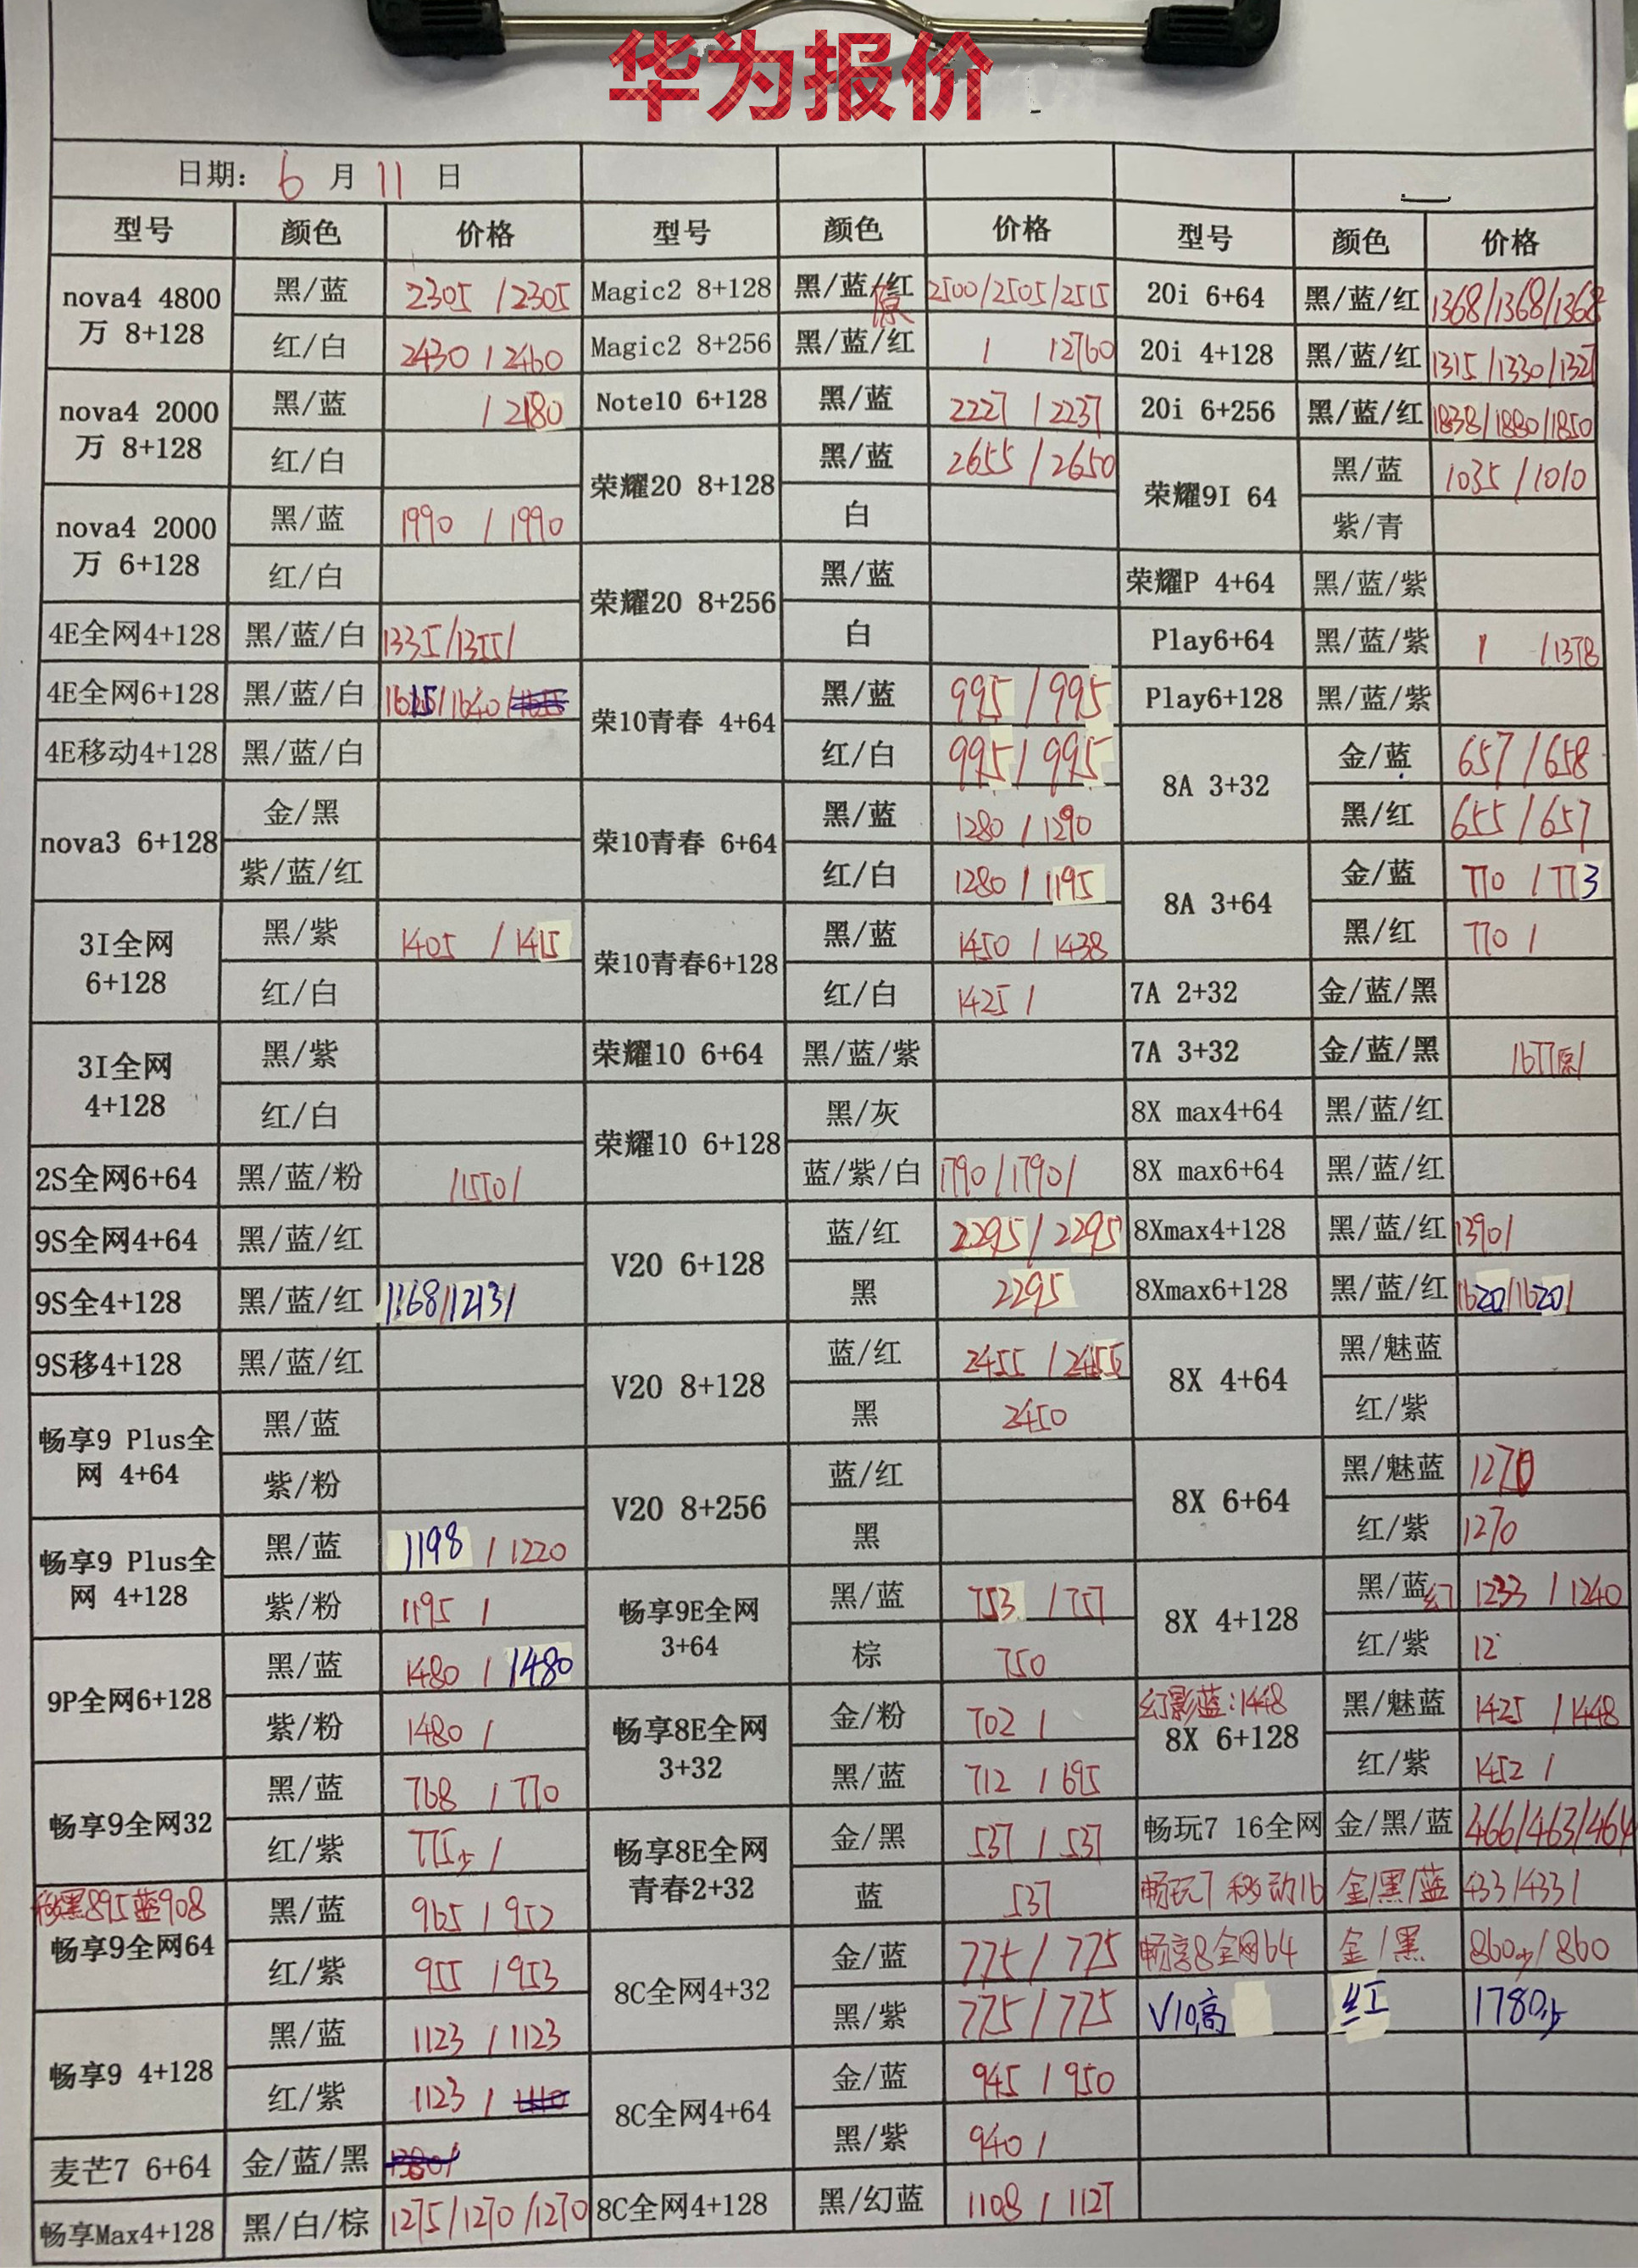 华为报价
日期: 6 月 11 日
型号 颜色 价格 型号 颜色 价格 型号 颜色 价格
nova4 4800万 8+128 黑/蓝 2305 /2305
红/白 2430 /2460
nova4 2000万 8+128 黑/蓝 /2180
红/白
nova4 2000万 6+128 黑/蓝 1990 /1990
红/白
4E全网4+128 黑/蓝/白 1335/1355/
4E全网6+128 黑/蓝/白 1615/1640/
4E移动4+128 黑/蓝/白
nova3 6+128 金/黑
紫/蓝/红
3I全网 6+128 黑/紫 1405 /1415
红/白
3I全网 4+128 黑/紫
红/白
2S全网6+64 黑/蓝/粉 /1550/
9S全网4+64 黑/蓝/红
9S全4+128 黑/蓝/红 1168/1213/
9S移4+128 黑/蓝/红
畅享9 Plus全网 4+64 黑/蓝
紫/粉
畅享9 Plus全网 4+128 黑/蓝 1198 /1220
紫/粉 1195 /
9P全网6+128 黑/蓝 1480 /1480
紫/粉 1480 /
畅享9全网32 黑/蓝 768 /770
红/紫 775少 /
移黑895蓝908
畅享9全网64 黑/蓝 965 /952
红/紫 955 /953
畅享9 4+128 黑/蓝 1123 /1123
红/紫 1123 /
麦芒7 6+64 金/蓝/黑
畅享Max4+128 黑/白/棕 1275/1270/1270
Magic2 8+128 黑/蓝/红 2500/2505/2515
原
Magic2 8+256 黑/蓝/红 / /2760
Note10 6+128 黑/蓝 2227 /2237
荣耀20 8+128 黑/蓝 2655 /2650
白
荣耀20 8+256 黑/蓝
白
荣10青春 4+64 黑/蓝 995 /995
红/白 995 /995
荣10青春 6+64 黑/蓝 1280 /1290
红/白 1280 /1195
荣10青春6+128 黑/蓝 1450 /1438
红/白 1425 /
荣耀10 6+64 黑/蓝/紫
荣耀10 6+128 黑/灰
蓝/紫/白 1790/1790/
V20 6+128 蓝/红 2295/2295
黑 2295
V20 8+128 蓝/红 2455 /2455
黑 2450
V20 8+256 蓝/红
黑
畅享9E全网 3+64 黑/蓝 753 /757
棕 750
畅享8E全网 3+32 金/粉 702 /
黑/蓝 712 /695
畅享8E全网青春2+32 金/黑 537 /537
蓝 537
8C全网4+32 金/蓝 775/775
黑/紫 775/775
8C全网4+64 金/蓝 945 /950
黑/紫 940 /
8C全网4+128 黑/幻蓝 1108 /1127
20i 6+64 黑/蓝/红 1368/1368/1368
20i 4+128 黑/蓝/红 1315/1330/1327
20i 6+256 黑/蓝/红 1838/1880/1850
荣耀9I 64 黑/蓝 1035 /1010
紫/青
荣耀P 4+64 黑/蓝/紫
Play6+64 黑/蓝/紫 / /1378
Play6+128 黑/蓝/紫
8A 3+32 金/蓝 657 /658
黑/红 655 /657
8A 3+64 金/蓝 770 /773
黑/红 770 /
7A 2+32 金/蓝/黑
7A 3+32 金/蓝/黑 /677原/
8X max4+64 黑/蓝/红
8X max6+64 黑/蓝/红
8Xmax4+128 黑/蓝/红 1390/
8Xmax6+128 黑/蓝/红 1620/1620/
8X 4+64 黑/魅蓝
红/紫
8X 6+64 黑/魅蓝 1270
红/紫 1270
8X 4+128 黑/蓝幻 1233 /1240
红/紫 12
幻影蓝:1448
8X 6+128 黑/魅蓝 1425 /1448
红/紫 1452 /
畅玩7 16全网 金/黑/蓝 466/463/464
畅玩7 移动16 金/黑/蓝 433/433/
畅享8全网64 金/黑 860少/860
V10高 红 1780少